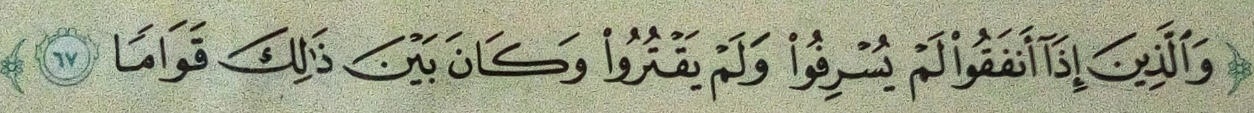 ﴿وَٱلَّذِينَ إِذَآ أَنفَقُوا۟ لَمْ يُسْرِفُوا۟ وَلَمْ يَقْتُرُوا۟ وَكَانَ بَيْنَ ذَٰلِكَ قَوَامًا ٦٧﴾